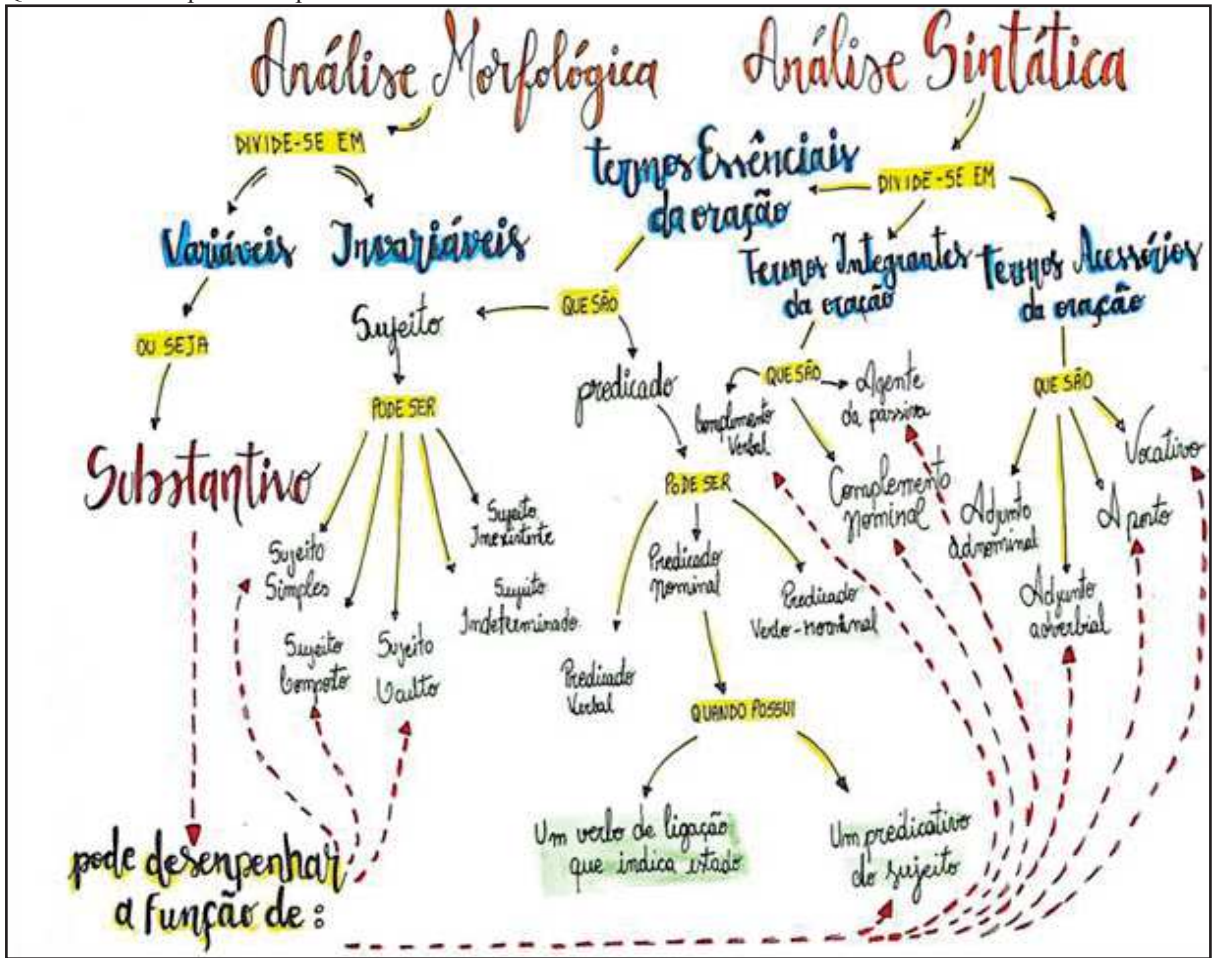 Análise Morfológica
Análise Sintática
DIVIDE-SE EM
Variáveis
Invariáveis
OU SEJA
Substantivo
pode desenpenhar
a função de:
termos Essênciais
da oração
DIVIDE-SE EM
Termos Integrantes
da oração
termos Acessórios
da oração
QUE SÃO
Sujeito
PODE SER
Sujeito
Simples
Sujeito
Composto
Sujeito
Oculto
Sujeito
Indeterminado
Sujeito
Inexistente
predicado
PODE SER
Predicado
Verbal
Predicado
Nominal
Predicado
Verbo-nominal
QUANDO POSSUI
Um verbo de ligação
que indica estado
Um predicativo
do sujeito
QUE SÃO
Complemento
Verbal
Agente
da passiva
Complemento
Nominal
QUE SÃO
Adjunto
adnominal
Adjunto
adverbial
Aposto
Vocativo